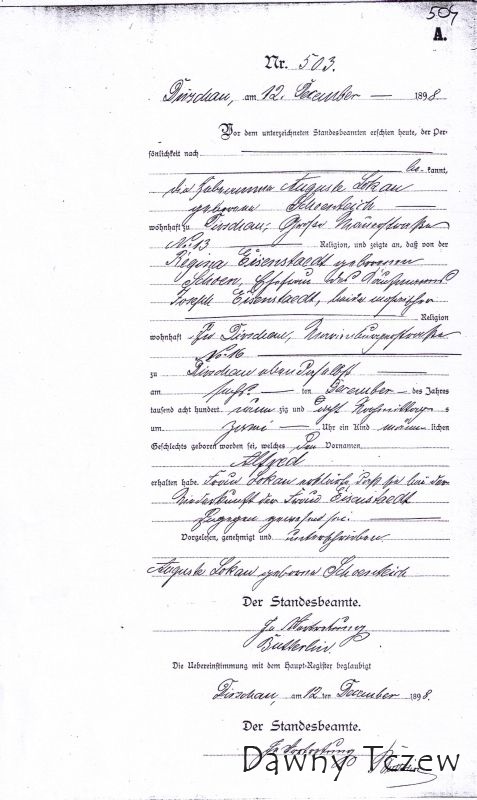 504
A.
Nr. 503.
Dirschau, am 12. December 1898
Vor dem unterzeichneten Standesbeamten erschien heute, der Per-
sönlichkeit nach
be- kannt,
die Hebeamme Auguste Lokau
geborene Schoenteich
wohnhaft zu Dirschau, Große
No 13 Religion, und zeigte an, daß von der
Regina Eisenstaedt geborenen
Schoen, Ehefrau des Kaufmanns
Joseph Eisenstaedt, beide mosaischer
Religion
wohnhaft zu Dirschau,
No 16
zu Dirschau eben daselbst
am ten December des Jahres
tausend acht hundert neun zig und acht Nachmittags
um zwei Uhr ein Kind männlichen
Geschlechts geboren worden sei, welches den Vornamen
Alfred
erhalten habe. Frau Lokau erklärte, daß sie bei der
Niederkunft der Frau Eisenstaedt
zugegen gewesen sei.
Vorgelesen, genehmigt und unterschrieben
Auguste Lokau geborene Schoenteich
Der Standesbeamte.
In Vertretung
Die Uebereinstimmung mit dem Haupt-Register beglaubigt
Dirschau, am 12 ten December 1898.
Der Standesbeamte.
In Vertretung
Dawny Tczew